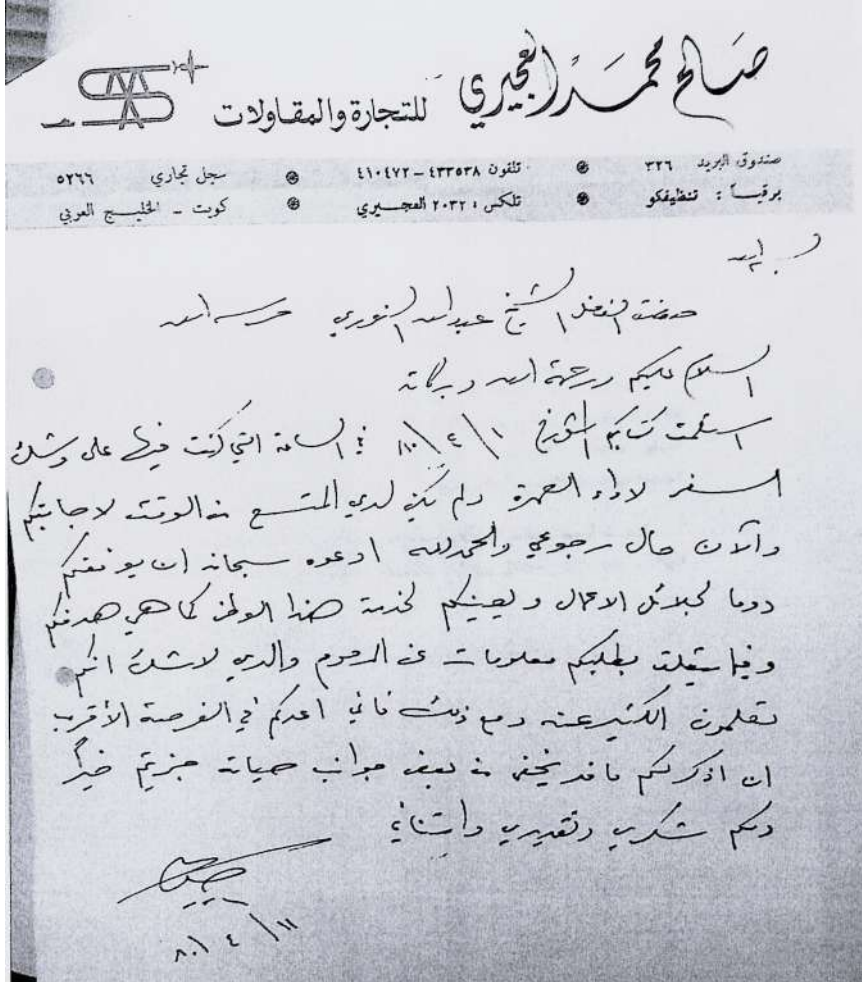 صالح محمد العجيري
للتجارة والمقاولات
صندوق البريد ٣٢٦ تلفون ٤٣٣٥٣٨ – ٤١٠٤٧٢ سجل تجاري ٥٢٦٦
برقياً : تنظيفكو تلكس : ٢٠٣٢ العجيري كويت – الخليج العربي
حضرت الفاضل الشيخ عبدالله النوري حرسه الله
السلام عليكم ورحمة الله وبركاته
استلمت كتابكم المؤرخ ١ / ٤ / ٨٠ في الساعة التي كنت فيها على وشك
السفر لاداء العمرة ولم يكن لدي المتسع من الوقت لاجابتكم
والآن حال رجوعي والحمد لله ادعوه سبحانه ان يوفقكم
دوما لجلائل الاعمال ويعينكم لخدمة هذا الوطن كما هي هدفكم
وفيما يتعلق بطلبكم معلومات عن المرحوم والدي لاشك انكم
تعلمون الكثير عنه ومع ذلك فاني اعدكم في الفرصة الأقرب
ان اذكر لكم ما قد يخفى من بعض جوانب حياته جزيتم خيراً
ولكم شكري وتقديري وامتناني
١١ / ٤ / ٨٠